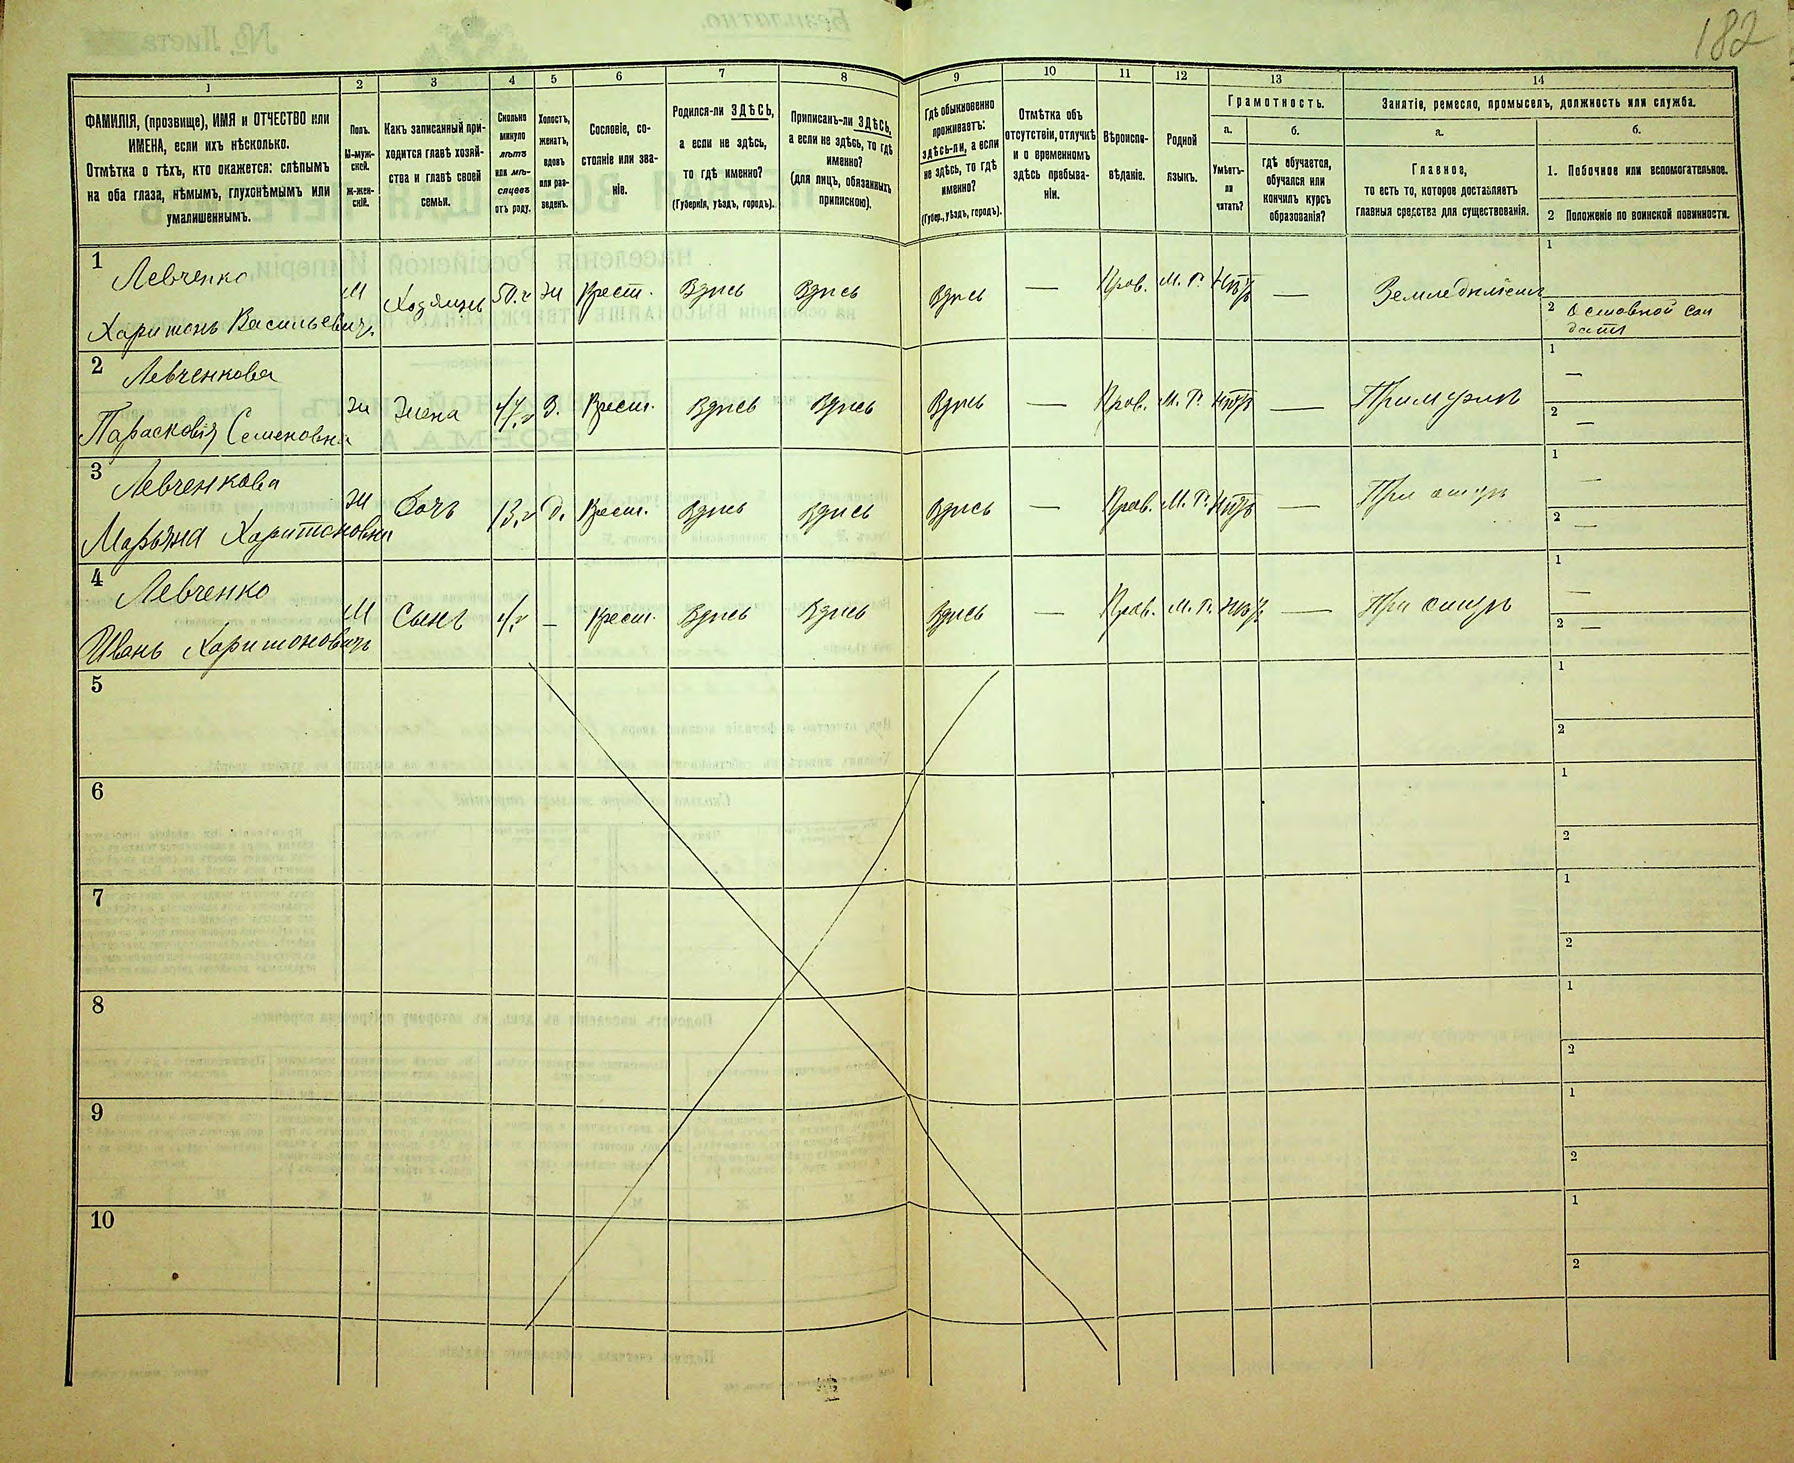 182
1 2 3 4 5 6 7 8 9 10 11 12 13 14
ФАМИЛІЯ, (прозвище), ИМЯ и ОТЧЕСТВО или
ИМЕНА, если ихъ нѣсколько.
Отмѣтка о тѣхъ, кто окажется: слѣпымъ
на оба глаза, нѣмымъ, глухонѣмымъ или
умалишеннымъ.
Полъ.
М-муж-
ской.
Ж-жен-
скій.
Какъ записанный при-
ходится главѣ хозяй-
ства и главѣ своей
семьи.
Сколько
минуло
лѣтъ
или мѣ-
сяцевъ
отъ роду.
Холостъ,
женатъ,
вдовъ
или раз-
веденъ.
Сословіе, со-
стояніе или зва-
ніе.
Родился-ли ЗДѢСЬ,
а если не здѣсь,
то гдѣ именно?
(Губернія, уѣздъ, городъ).
Приписанъ-ли ЗДѢСЬ,
а если не здѣсь, то гдѣ
именно?
(для лицъ, обязанныхъ
припискою).
Гдѣ обыкновенно
проживаетъ:
здѣсь-ли, а если
не здѣсь, то гдѣ
именно?
(Губер., уѣздъ, городъ).
Отмѣтка объ
отсутствіи, отлучкѣ
и о временномъ
здѣсь пребыва-
ніи.
Вѣроиспо-
вѣданіе.
Родной
языкъ.
Грамотность.
а.
Умѣетъ-
ли
читать?
б.
гдѣ обучается,
обучался или
кончилъ курсъ
образованія?
Занятіе, ремесло, промыселъ, должность или служба.
а.
Главное,
то есть то, которое доставляетъ
главныя средства для существованія.
б.
1. Побочное или вспомогательное.
2 Положеніе по воинской повинности.
1
Левченко
Харитонъ Васильевичъ
М Хозяинъ 50.г Ж Крест. Здѣсь Здѣсь Здѣсь — Прав. М. Р. Нѣтъ —
1
2
2
Левченкова
Парасковія Семеновна
Ж Жена З. Крест. Здѣсь Здѣсь Здѣсь — Прав. М. Р. Нѣтъ — При мужѣ
1 —
2 —
3
Левченкова
Марьяна Харитоновна
Ж Дочь 13.г Д. Крест. Здѣсь Здѣсь Здѣсь — Прав. М. Р. Нѣтъ — При отцѣ
1 —
2 —
4
Левченко
Иванъ Харитоновичъ
М Сынъ — Крест. Здѣсь Здѣсь Здѣсь — Прав. М. Р. Нѣтъ — При отцѣ
1 —
2 —
5
1
2
6
1
2
7
1
2
8
1
2
9
1
2
10
1
2